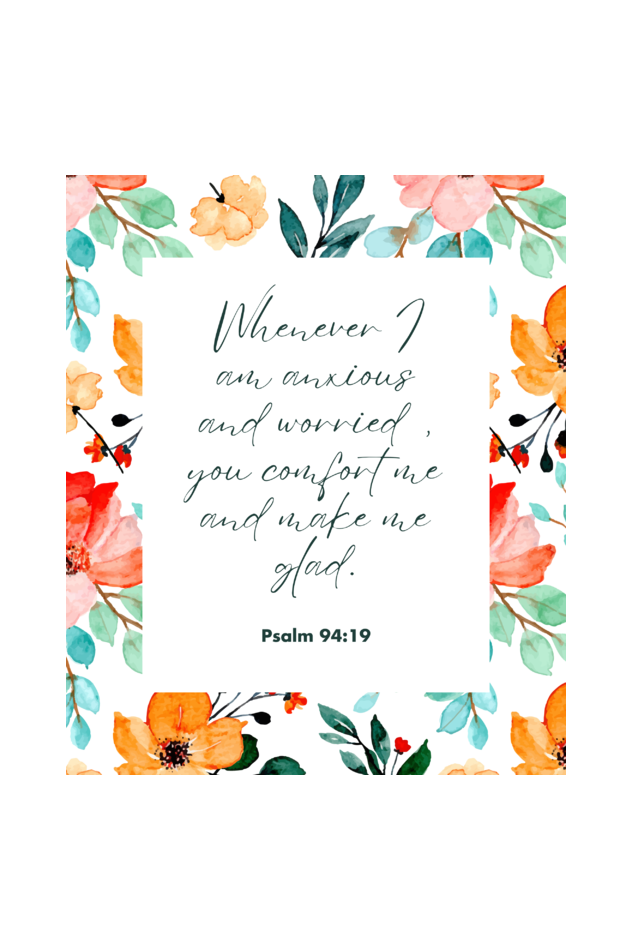 Whenever I
am anxious
and worried ,
you comfort me
and make me
glad.
Psalm 94:19